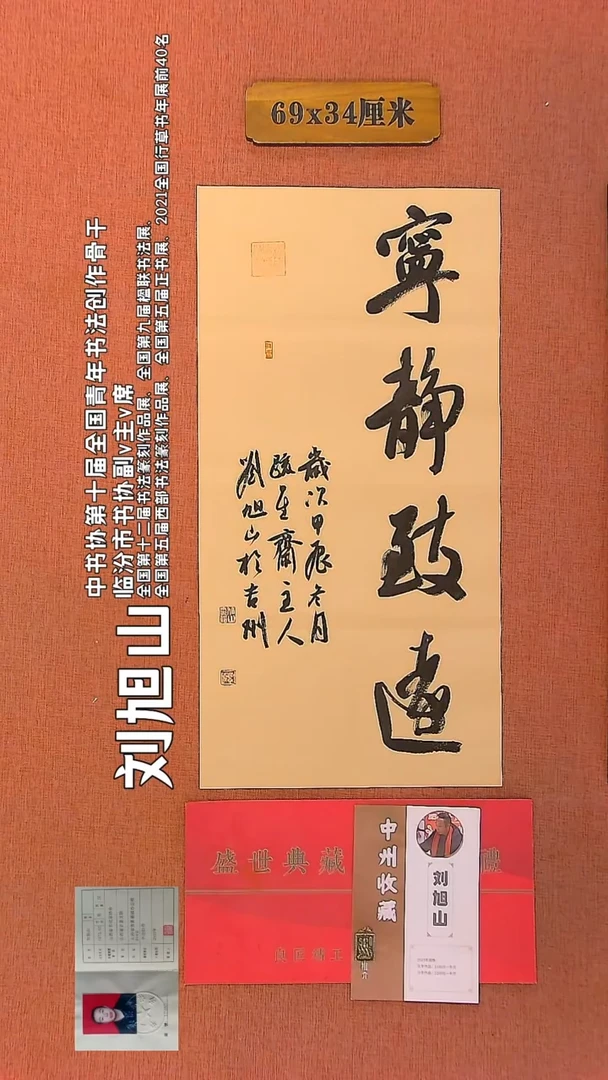 69x34厘米
寧靜致遠
歲次甲辰冬月
齋主人
劉旭山於吉州
中书协第十届全国青年书法创作骨干
临汾市书协副v主v席
全国第十二届书法篆刻作品展、全国第九届楹联书法展、
全国第五届西部书法篆刻作品展、全国第五届正书展、2021全国行草书年展前40名
刘旭山
盛世典藏
中州收藏
刘旭山